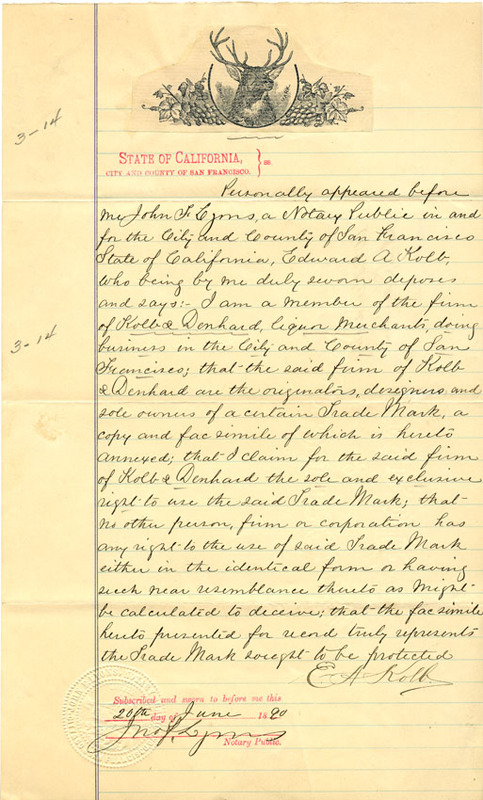 3-14
STATE OF CALIFORNIA, } ss.
CITY AND COUNTY OF SAN FRANCISCO.
Personally appeared before
me John F Lyons, a Notary Public in and
for the City and County of San Francisco
State of California, Edward A Kolb,
who being by me duly sworn deposes
and says:- I am a member of the firm
of Kolb & Denhard, liquor merchants, doing
3-14
business in the City and County of San
Francisco; that the said firm of Kolb
& Denhard are the originators, designers and
sole owners of a certain Trade Mark, a
copy and fac simile of which is hereto
annexed; that I claim for the said firm
of Kolb & Denhard the sole and exclusive
right to use the said Trade Mark; that
no other person, firm or corporation has
any right to the use of said Trade Mark
either in the identical form or having
such near resemblance thereto as might
be calculated to deceive; that the fac simile
hereto presented for record truly represents
the Trade Mark sought to be protected
E A Kolb
Subscribed and sworn to before me this
20th day of June 1890
Jno F. Lyons
Notary Public.